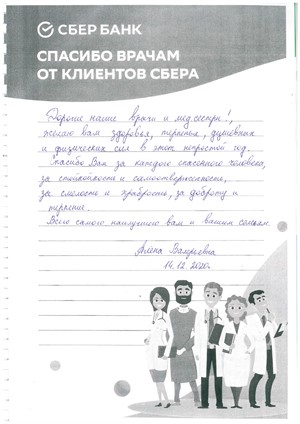 СБЕР БАНК
СПАСИБО ВРАЧАМ
ОТ КЛИЕНТОВ СБЕРА
Дорогие наши врачи и медсестры!,
желаю вам здоровья, терпенья, душевных
и физических сил в этот непростой год.
Спасибо Вам за каждого спасенного человека,
за стойкость и самоотверженность,
за смелость и храбрость, за доброту и
терпение.
Всего самого наилучшего вам и вашим семьям.
Алена Валерьевна
14.12.2020г.